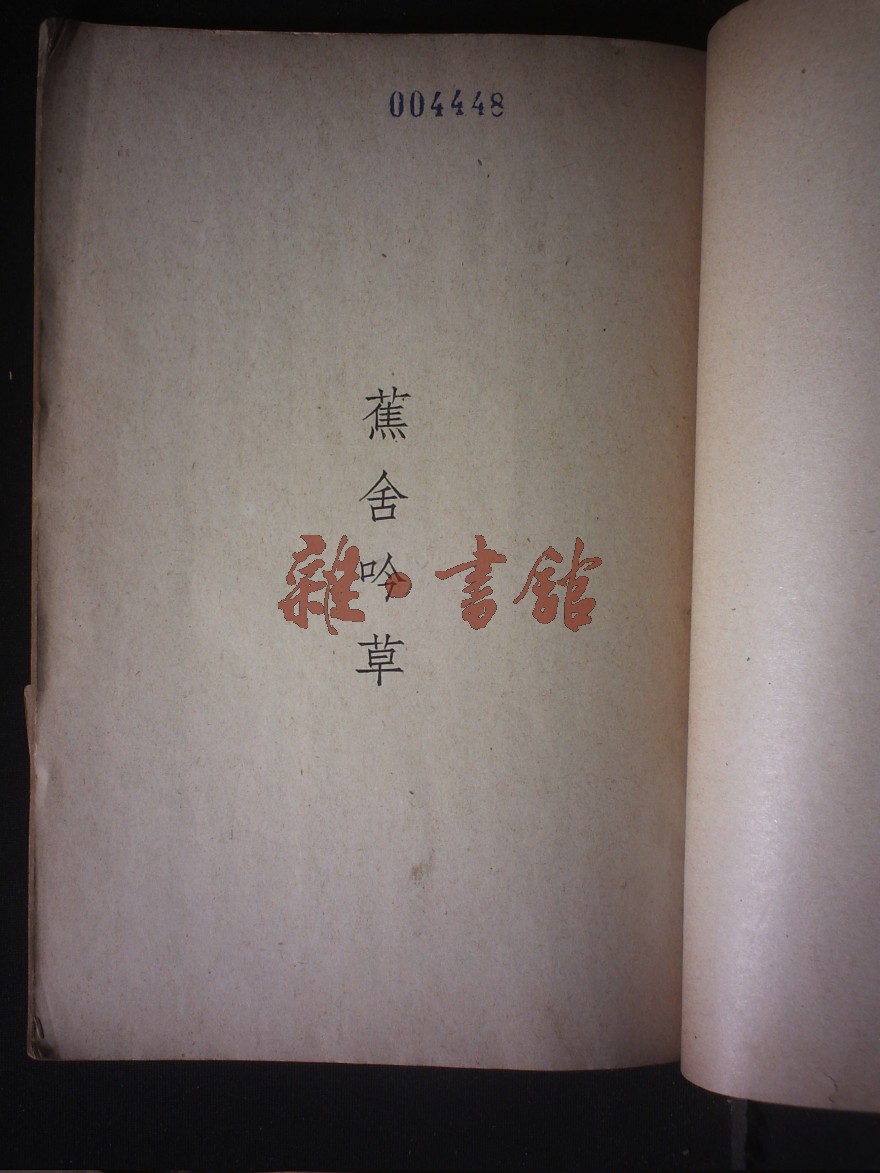 004448
蕉舍吟草
雜·書館